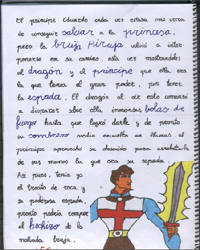 El príncipe Eduardo cada vez estaba más cerca
de conseguir salvar a la princesa,
pero la bruja Piruja volvió a inter-
ponerse en su camino esta vez mostrándoles
el dragón y al príncipe que ella era
la que tenía el gran poder, por tener
la espada. El dragón al oír esto comenzó
a disparar sobre ella inmensas bolas de
fuego hasta que logró darle y de pronto
su sombrero voló envuelto en llamas. El
príncipe aprovechó su descuido para arrebatarle
de sus manos la que era su espada.
Así pues, tenía ya
el bonito de coca, y
su poderosa espada,
pronto podría romper
el hechizo de la
malvada bruja.